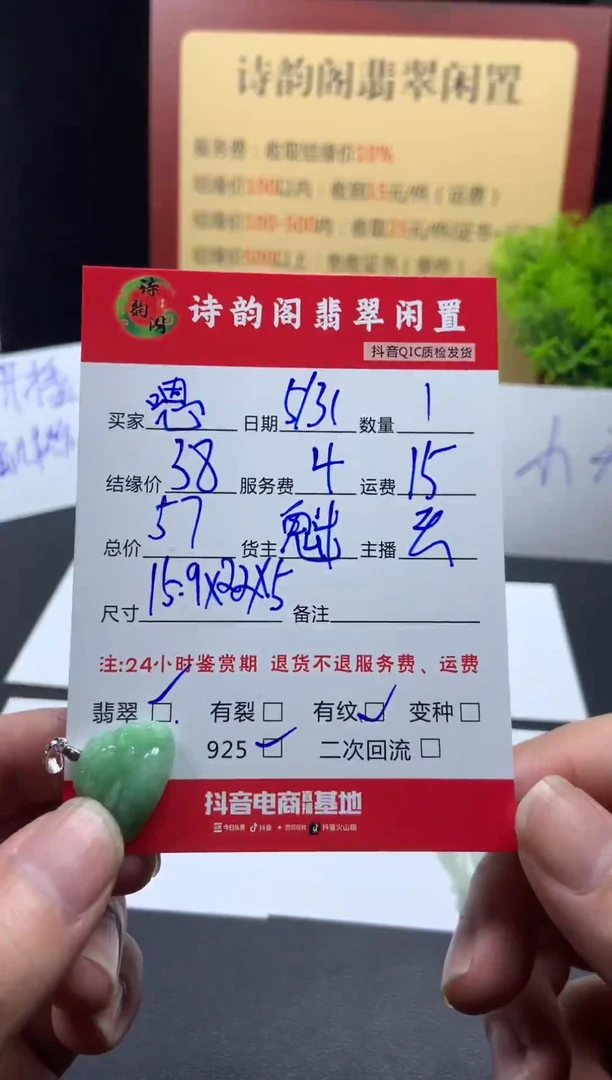 诗韵阁翡翠闲置
服务费：收取结缘价10%
结缘价100以内：收取15元/件（运费）
结缘价100-500内：收取25元/件(证书+
结缘价500以上：免收证书（单件）
诗韵阁
诗韵阁翡翠闲置
抖音QIC质检发货
买家 嗯 日期 5/31 数量 1
结缘价 38 服务费 4 运费 15
总价 57 货主 魁 主播 云
尺寸 15.9X22X5 备注
注:24小时鉴赏期 退货不退服务费、运费
翡翠 有裂 有纹 变种
925 二次回流
抖音电商直播基地
今日头条 抖音 西瓜视频 抖音火山版